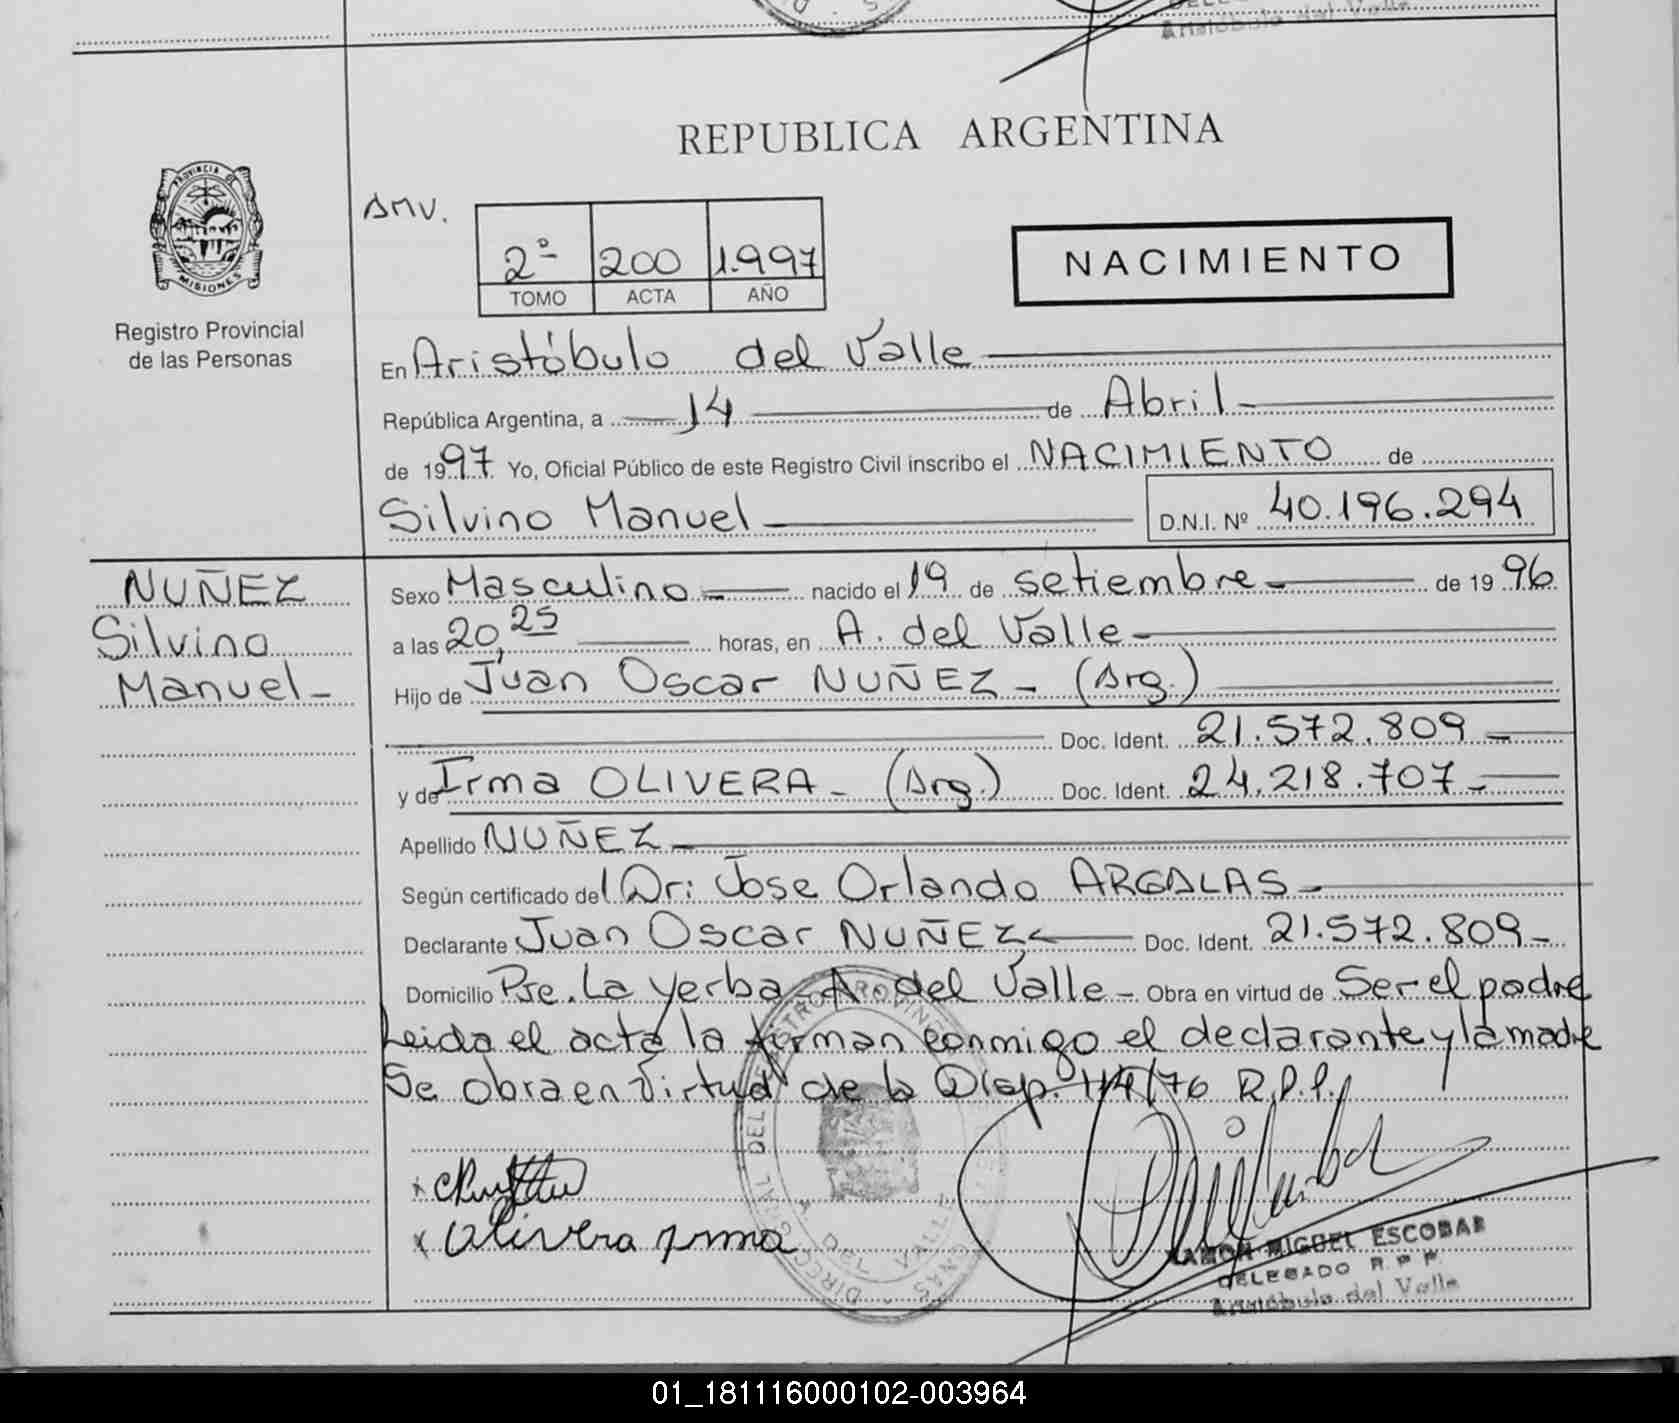 Aristóbulo del Valle
REPUBLICA ARGENTINA
PROVINCIA DE
MISIONES
Registro Provincial
de las Personas
AMV.
2º 200 1.997
TOMO ACTA AÑO
NACIMIENTO
En Aristóbulo del Valle
República Argentina, a 14 de Abril
de 1997 Yo, Oficial Público de este Registro Civil inscribo el NACIMIENTO de
Silvino Manuel D.N.I. Nº 40.196.294
NUÑEZ
Silvino
Manuel
Sexo Masculino nacido el 19 de setiembre de 1996
a las 20,25 horas, en A. del Valle
Hijo de Juan Oscar NUÑEZ - (Arg.)
Doc. Ident. 21.572.809
y de Irma OLIVERA - (Arg.) Doc. Ident. 24.218.707
Apellido NUÑEZ
Según certificado del Dr: Jose Orlando ARGALAS
Declarante Juan Oscar NUÑEZ Doc. Ident. 21.572.809
Domicilio Pje. La Yerba - A. del Valle - Obra en virtud de Ser el padre
Leida el acta la firman conmigo el declarante y la madre
Se obra en virtud de la Disp. 114/76 R.P.P.
x
x Olivera Irma
RAMON MIGUEL ESCOBAR
DELEGADO R.P.P.
Aristóbulo del Valle
01_181116000102-003964